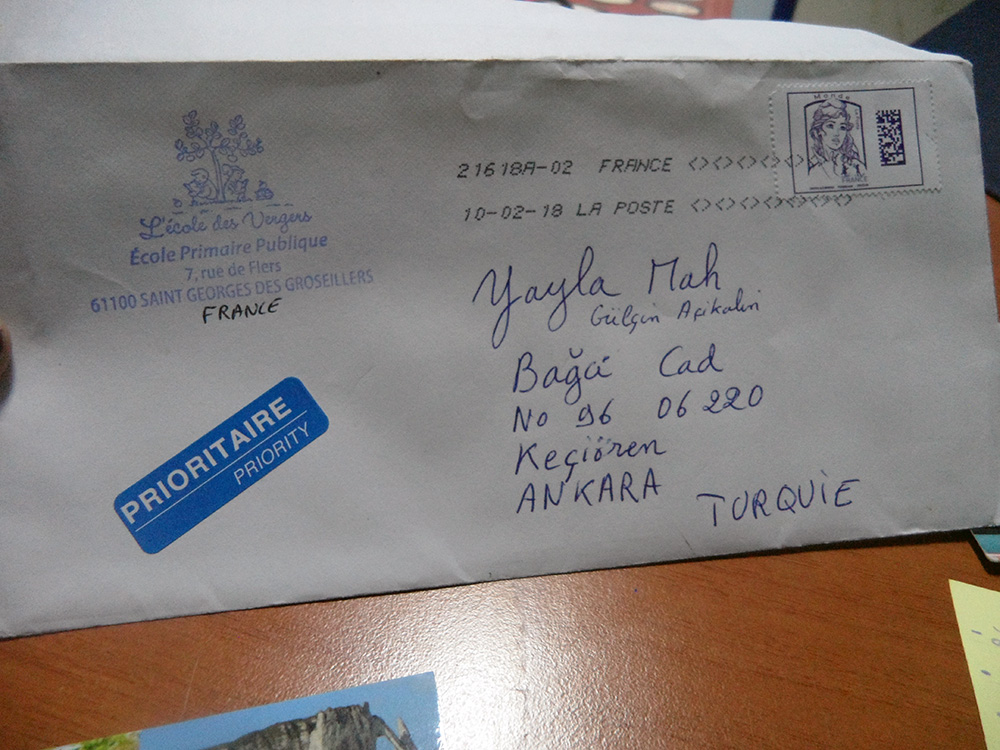 L'école des Vergers
École Primaire Publique
7, rue de Flers
61100 SAINT GEORGES DES GROSEILLERS
FRANCE
PRIORITAIRE
PRIORITY
Monde
FRANCE
21618A-02 FRANCE <><><><><><><><>
10-02-18 LA POSTE <><><><><><><><>
Yayla Mah
Gülçin Açikalin
Bağci Cad
No 96 06220
Keçiören
ANKARA TURQUIE